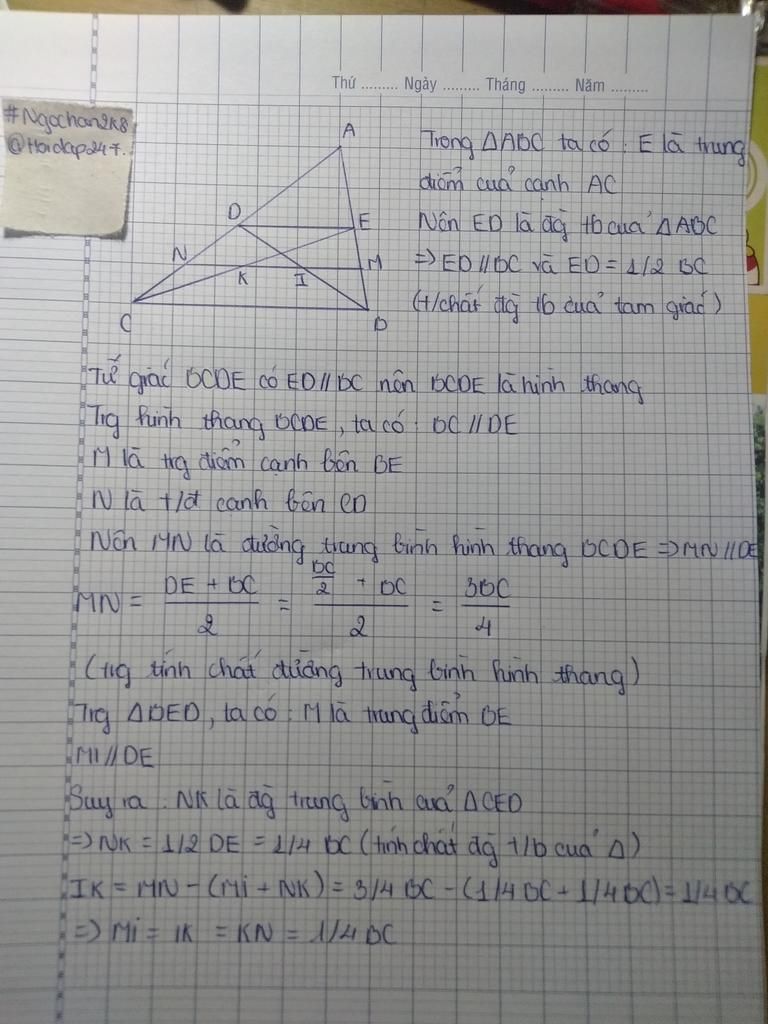 Thứ ......... Ngày ......... Tháng ......... Năm .........
#Ngochan2k8
@Hoidap247.
A
D
E
N
K
I
M
C
B
Trong ΔABC ta có : E là trung
điểm cuả cạnh AC
Nên ED là đg tb cuả ΔABC
=> ED // BC và ED = 1/2 BC
(t/chất đg tb cuả tam giác)
Tứ giác BCDE có ED // BC nên BCDE là hình thang
Trg hình thang BCDE, ta có : BC // DE
M là trg điểm cạnh bên BE
N là t/đ cạnh bên CD
Nên MN là đường trung bình hình thang BCDE => MN // DE
MN = DE + BC / 2 = BC/2 + BC / 2 = 3BC / 4
(trg tính chất đường trung bình hình thang)
Trg ΔBED, ta có : M là trung điểm BE
MI // DE
Suy ra : NK là đg trung bình cuả ΔCED
=> NK = 1/2 DE = 1/4 BC (tính chất đg t/b cuả Δ)
IK = MN - (Mi + NK) = 3/4 BC - (1/4 BC + 1/4 BC) = 1/4 BC
=> Mi = IK = KN = 1/4 BC